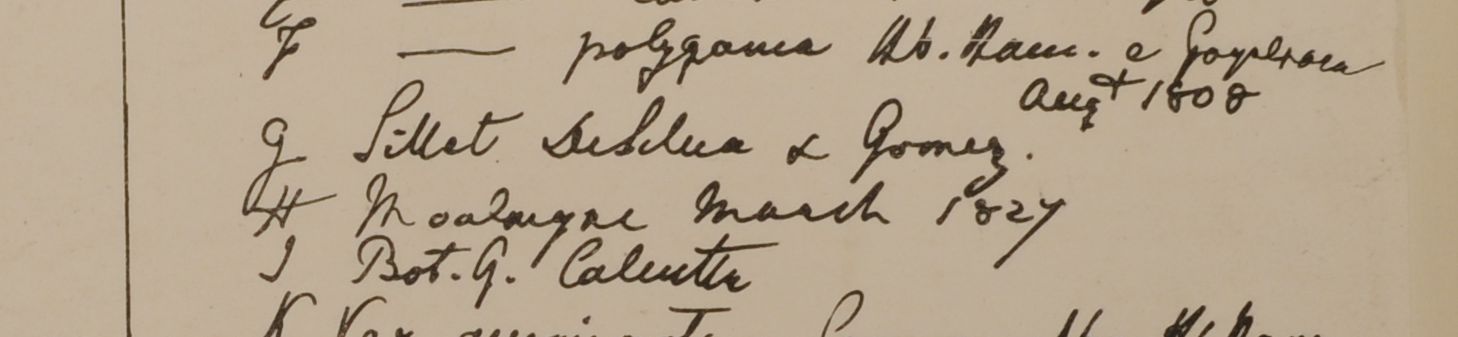 F — polygama Hb. Ham. e Goyalpara
Augt 1808
G Sillet DeSilva & Gomez.
H Moalmyne March 1827
I Bot. G. Calcutta
K Var